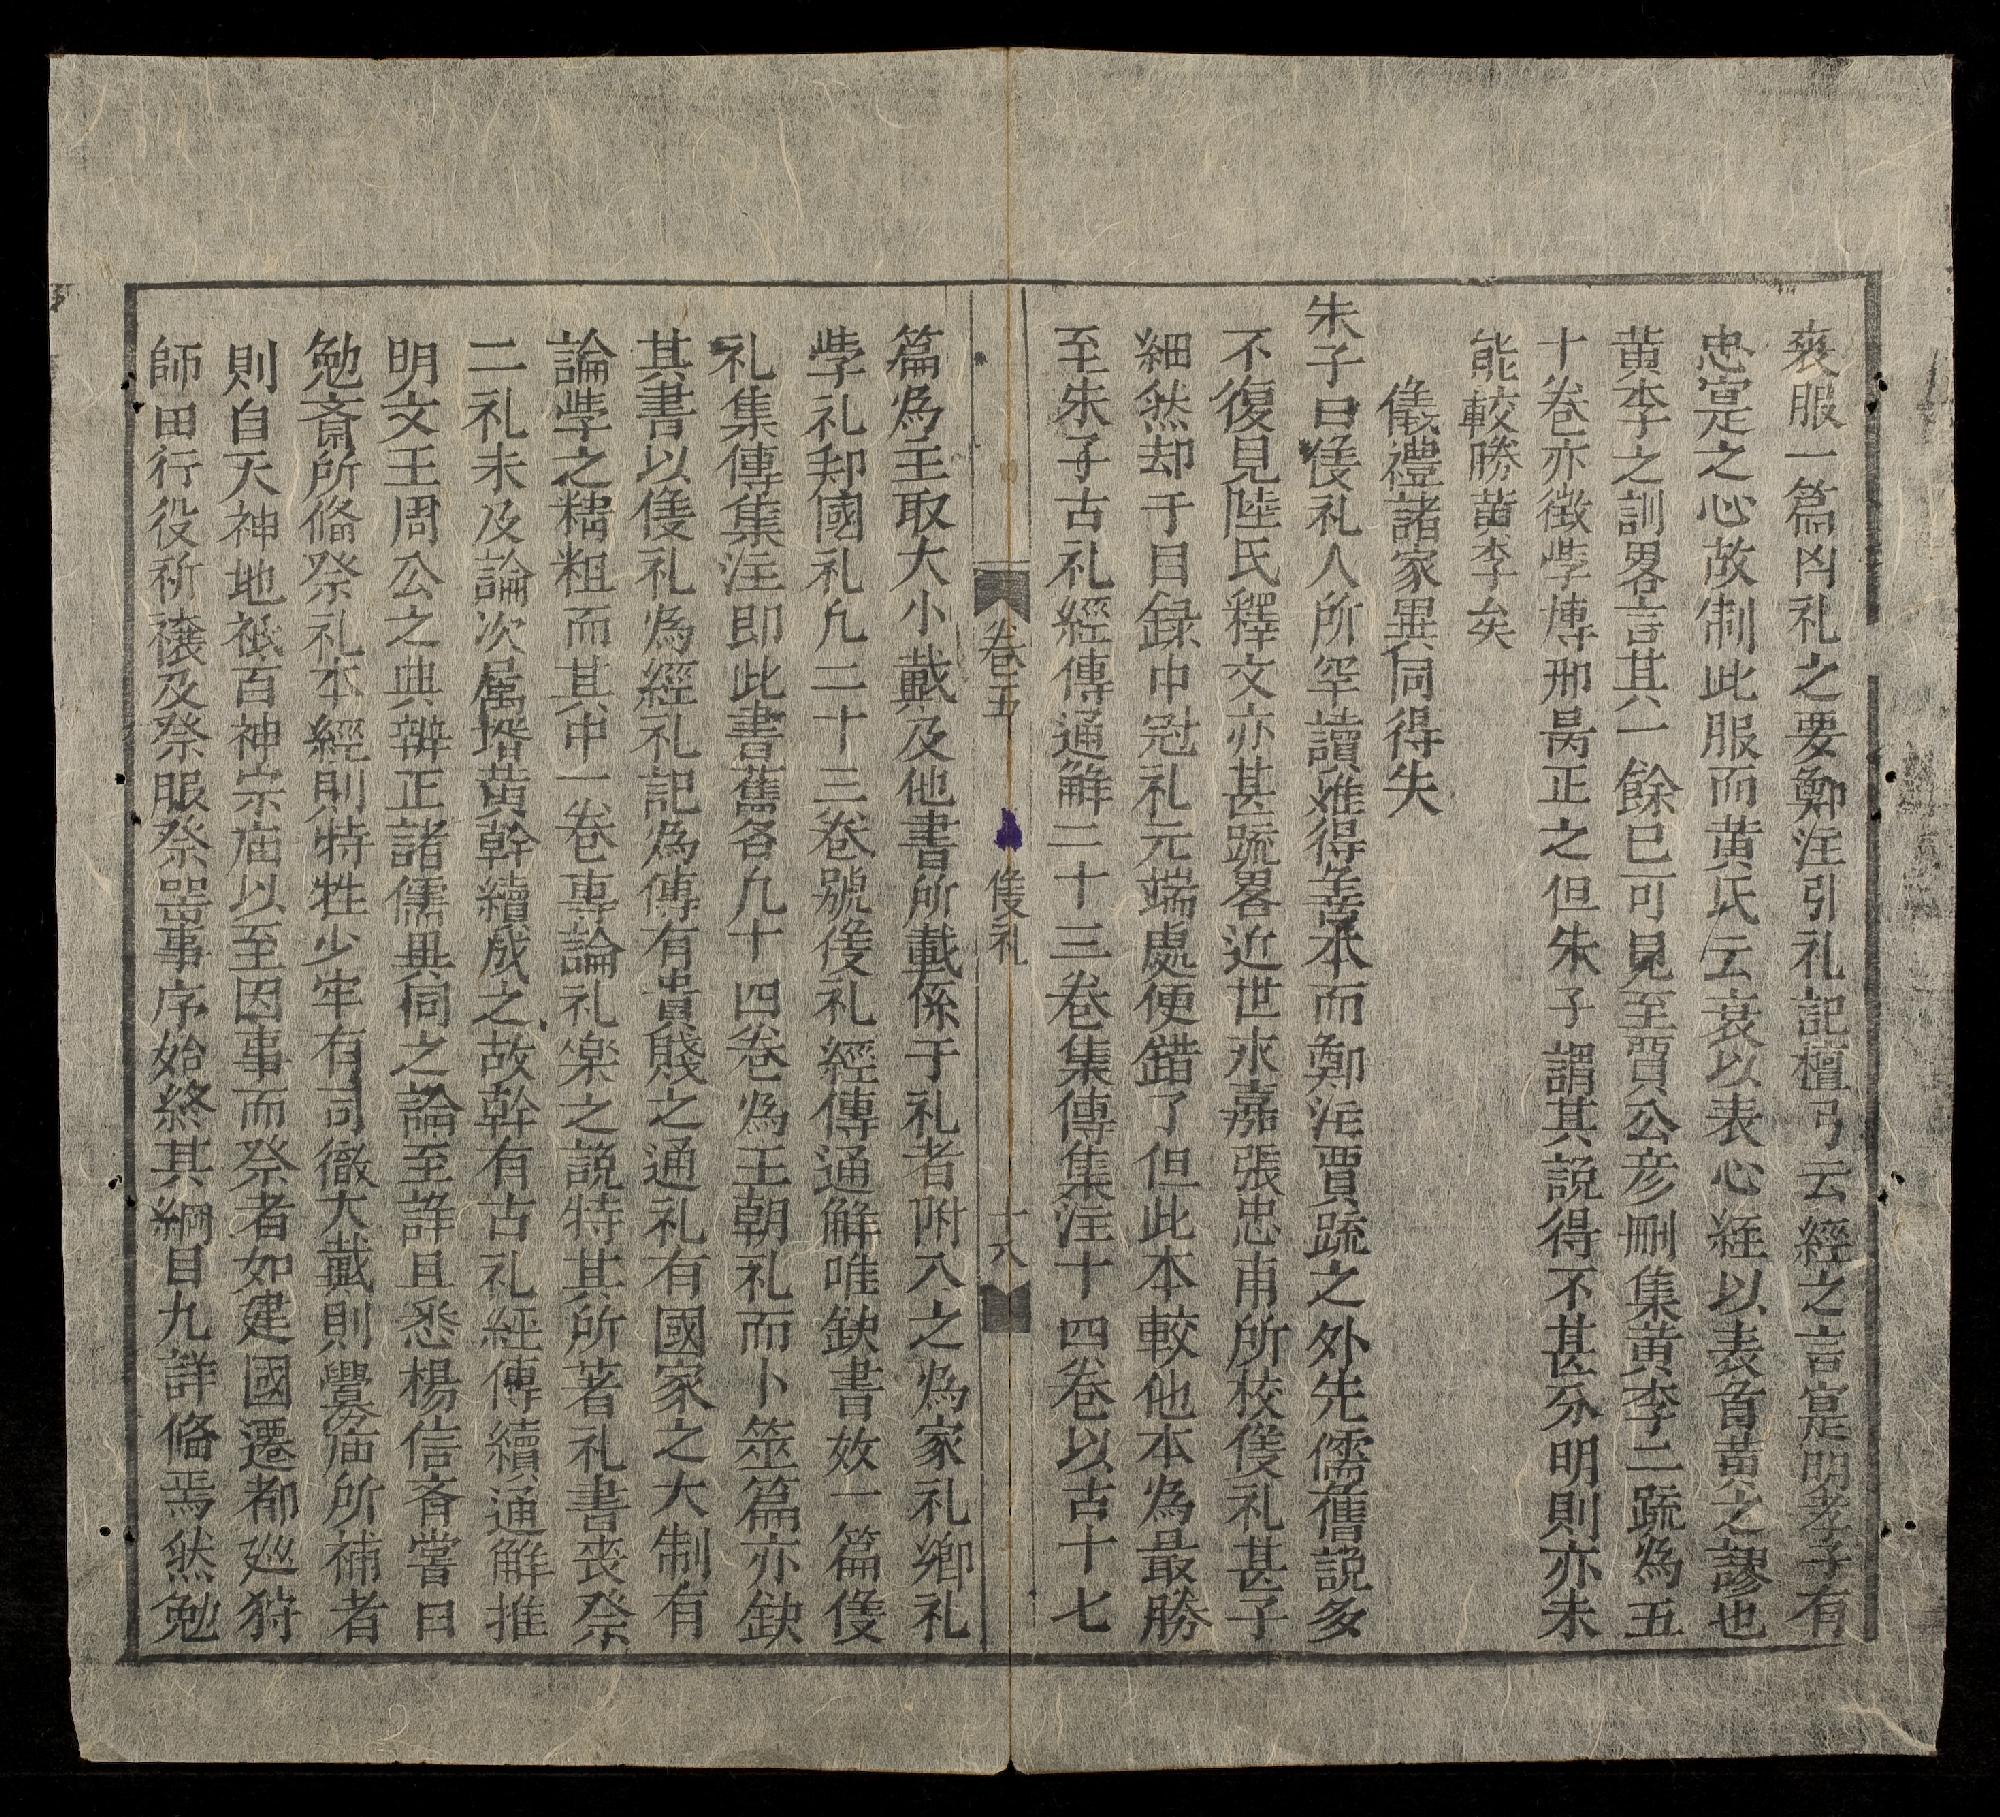 喪服一篇凶礼之要鄭注引礼記檀弓云經之言寔明孝子有
忠寔之心故制此服而黄氏云衰以表心絰以表首黄之謬也
黄李之訓畧言其一餘已可見至賈公彦刪集黄李二疏為五
十卷亦徵学博邢昺正之但朱子謂其説得不甚分明則亦未
能較勝黄李矣
儀禮諸家異同得失
朱子曰仪礼人所罕讀难得善本而鄭注賈疏之外先儒舊説多
不復見陸氏釋文亦甚疏畧近世永嘉張忠甫所校仪礼甚子
細然却于目録中冠礼元端處便錯了但此本較他本為最勝
至朱子古礼經傳通解二十三卷集傳集注十四卷以古十七
卷五 仪礼 十八
篇為主取大小戴及他書所載係于礼者附入之為家礼鄉礼
学礼邦國礼凢二十三卷號仪礼經傳通解唯缺書效一篇仪
礼集傳集注即此書舊各凢十四卷為王朝礼而卜筮篇亦缺
其書以仪礼為經礼記為傳有貴賤之通礼有國家之大制有
論学之精粗而其中一卷専論礼楽之説特其所著礼書喪祭
二礼未及論次属壻黄幹續成之故幹有古礼經傳續通解推
明文王周公之典辨正諸儒異同之論至詳且悉楊信斉嘗曰
勉斎所俻祭礼本經則特牲少牢有司徹大戴則釁庙所補者
則自天神地祇百神宗庙以至因事而祭者如建國遷都廵狩
師田行役祈禳及祭服祭噐事序始終其綱目九詳俻焉然勉